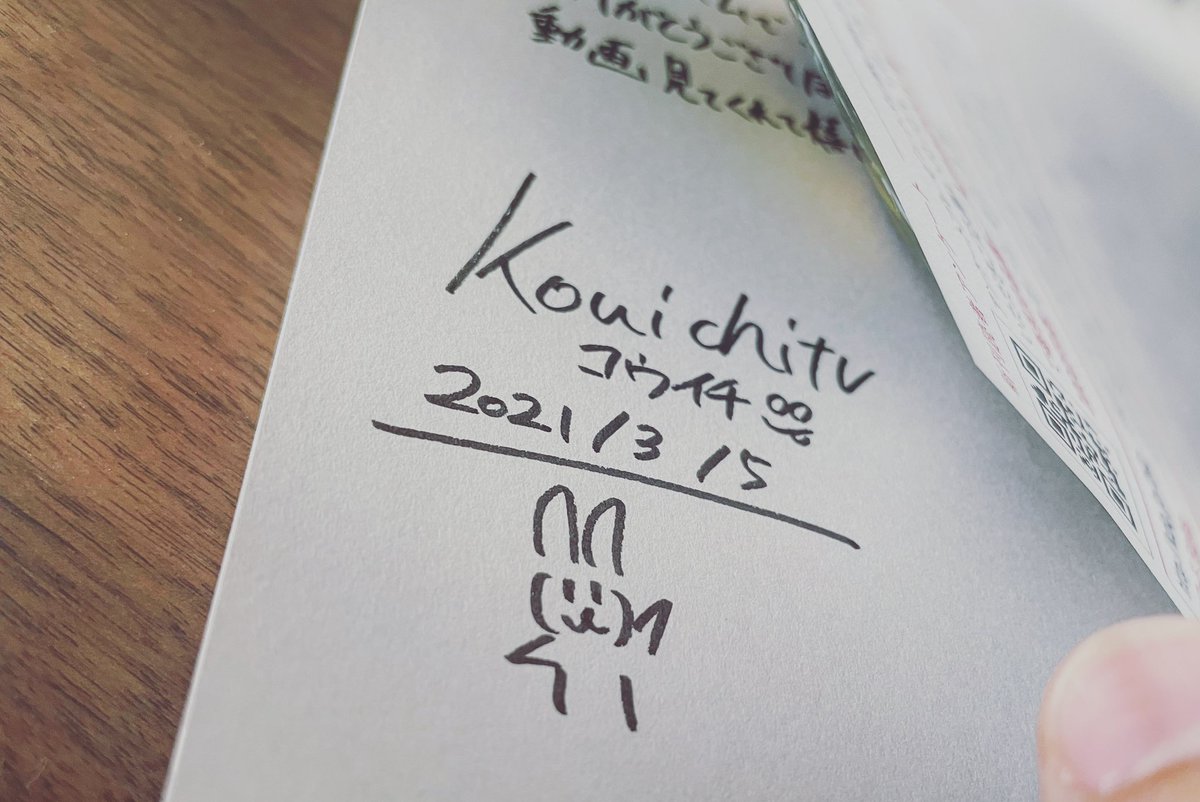 がとうござい
動画見てくれて
Kouichitv
コウイチ
2021/3/15